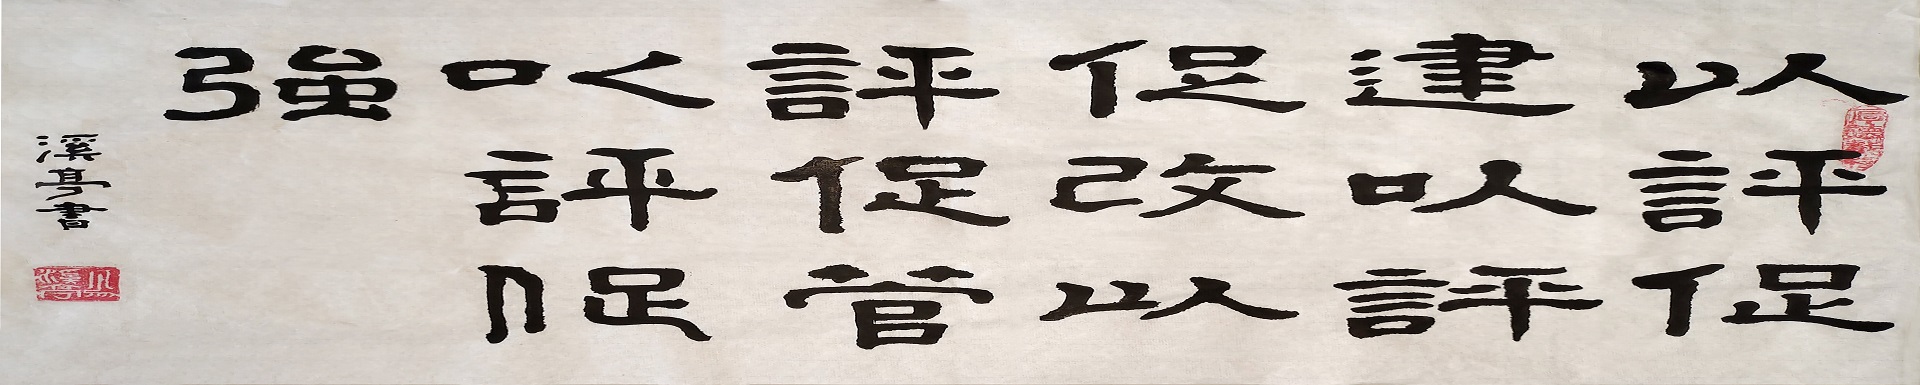 以評促
建以評
促改以
評促管
以評促
強
溪亭書